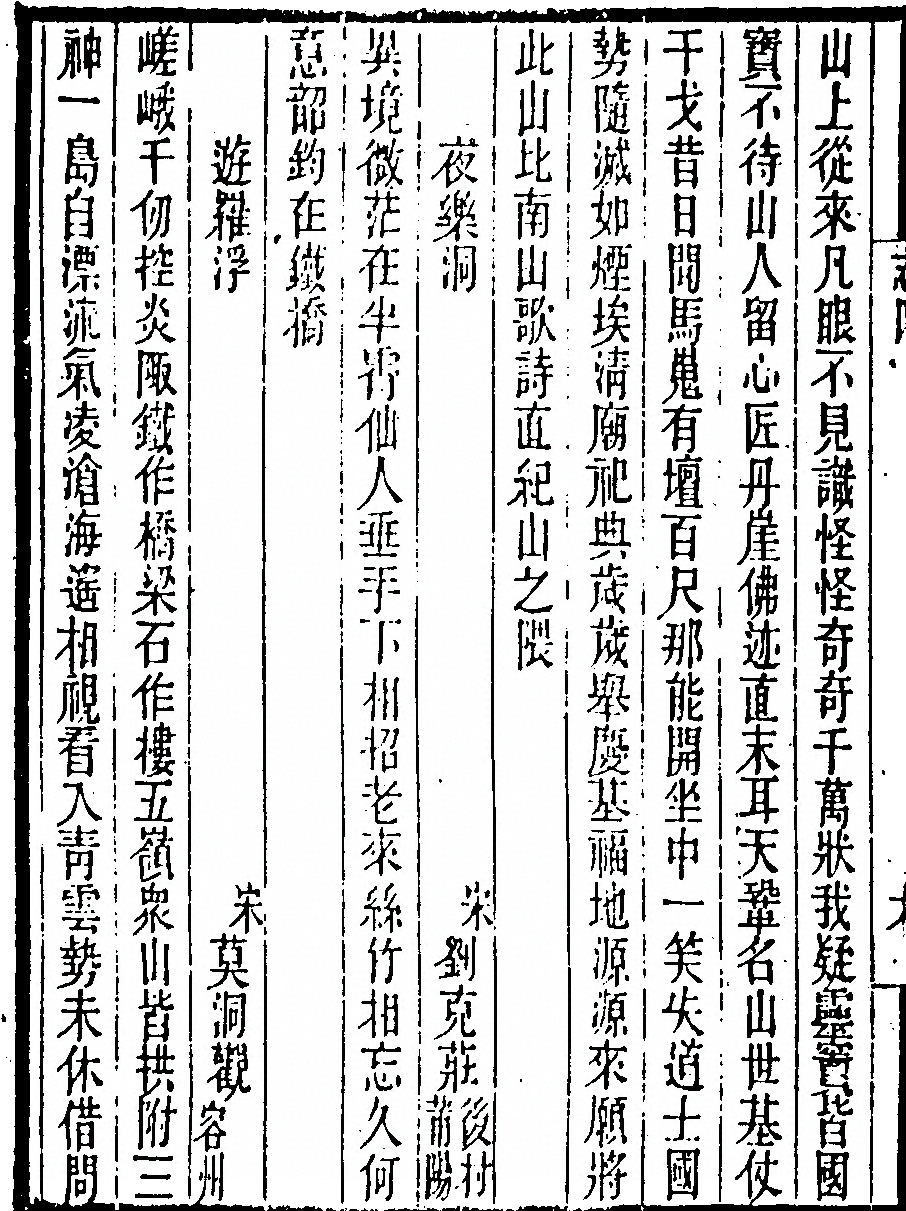 山上從來凡眼不見識怪怪奇奇千萬狀我疑靈寶皆國
寶不待山人留心匠丹崖佛迹直末耳天鞏名山世基仗
干戈昔日閙馬嵬有壇百尺那能開坐中一笑失道士國
勢隨滅如煙埃清廟祀典歲歲舉慶基福地源源來願將
此山比南山歌詩直紀山之隈
夜樂洞 宋劉克莊後村莆陽
異境微茫在半霄仙人垂手下相招老來絲竹相忘久何
意韶鈞在鐵橋
遊羅浮 宋莫洞觀容州
嵯峨千仞控炎陬鐵作橋梁石作樓五嶺衆山皆拱附三
神一島自漂流氣凌滄海遥相視看入靑雲勢未休借問